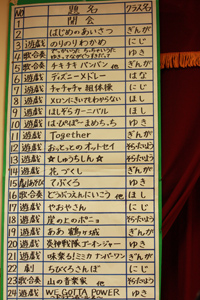 NO 題名 クラス名
1 開会
2 はじめのあいさつ ぎんが
3 遊戯 のりのりわかめ にじ
4 歌合奏 ゆき
5 歌合奏 チキチキバンバン 他 ぎんが
6 遊戯 ディズニーメドレー はな
7 遊戯 チャチャチャ 組体操 にじ
8 遊戯 メロンにさいてわらない ほし
9 遊戯 はしずらカーニバル ほし
10 遊戯 はなぱぱーまめちっち ゆき
11 遊戯 Together ぎんが
12 遊戯 おっとっとのオットセイ
13 遊戯 ☆しゅうちしん☆ ゆき
14 遊戯 花づくし ぎんが
15 てぶくろ ゆき
16 歌合奏 どうぶつえんにいこう 他 ほし
17 遊戯 やおやさん にじ
18 遊戯 崖の上のポニョ
19 遊戯 ああ 鶴ヶ城 ぎんが
20 遊戯 炎神戦隊ゴーオンジャー ゆき
21 遊戯 ミミカ ナンバーワン ぎんが
22 劇 ちびくろさんぼ にじ
23 歌合奏 山の音楽家 他
24 遊戯 WE GOTTA POWER ゆき